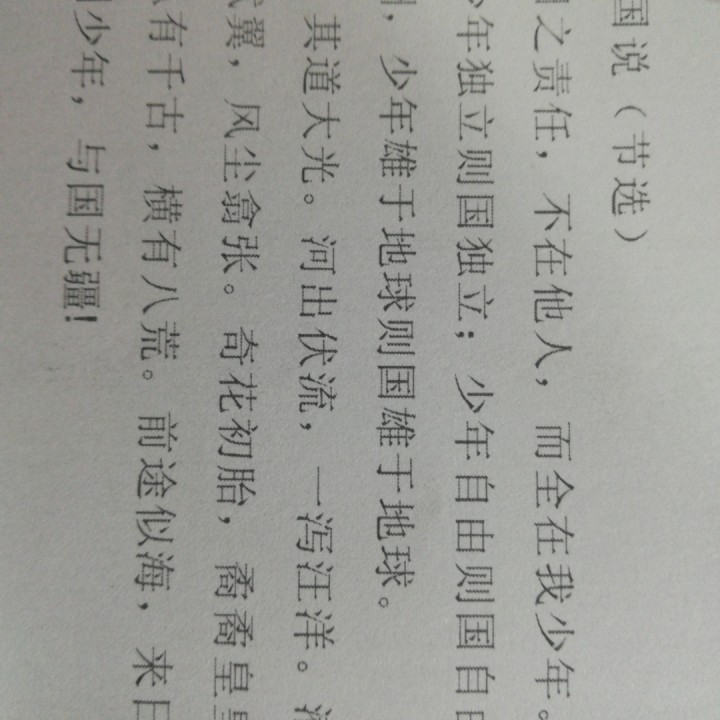 国说（节选）
之责任，不在他人，而全在我少年。
年独立则国独立；少年自由则国自由
，少年雄于地球则国雄于地球。
其道大光。河出伏流，一泻汪洋。潜
翼，风尘翕张。奇花初胎，矞矞皇皇
有千古，横有八荒。前途似海，来日
少年，与国无疆！